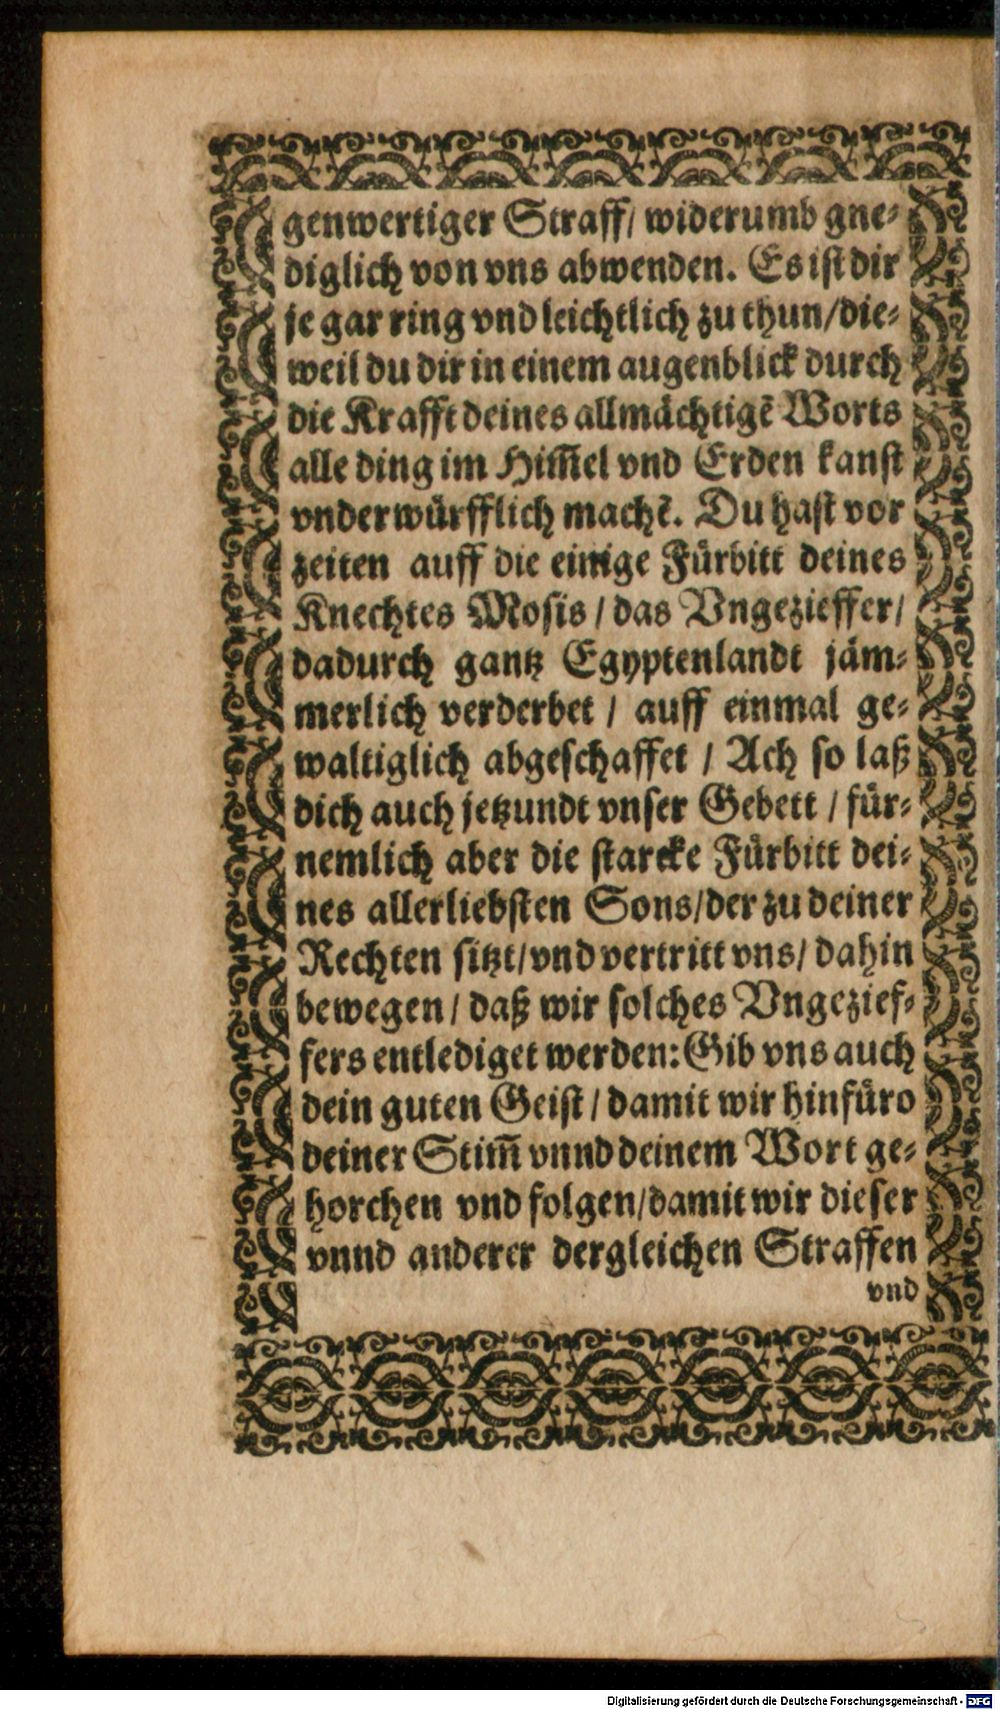 genwertiger Straff/ widerumb gne⸗
diglich von vns abwenden. Es ist dir
je gar ring vnd leichtlich zu thun/die⸗
weil du dir in einem augenblick durch
die Krafft deines allmächtigẽ Worts
alle ding im Him̃el vnd Erden kanst
vnderwürfflich machẽ. Du hast vor
zeiten auff die einige Fürbitt deines
Knechtes Mosis / das Vngezieffer/
dadurch gantz Egyptenlandt jäm⸗
merlich verderbet / auff einmal ge⸗
waltiglich abgeschaffet / Ach so laß
dich auch jetzundt vnser Gebett / für⸗
nemlich aber die starcke Fürbitt dei⸗
nes allerliebsten Sons/der zu deiner
Rechten sitzt/vnd vertritt vns/ dahin
bewegen/ daß wir solches Vngezief⸗
fers entlediget werden: Gib vns auch
dein guten Geist / damit wir hinfüro
deiner Stim̃ vnnd deinem Wort ge⸗
horchen vnd folgen/damit wir dieser
vnnd anderer dergleichen Straffen
vnd
Digitalisierung gefördert durch die Deutsche Forschungsgemeinschaft - DFG